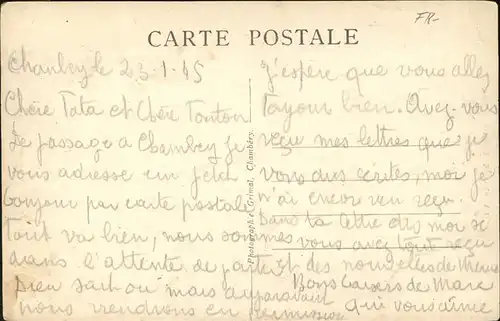 FR-
CARTE POSTALE
Chambéry le 23-1-45
Chère Tata et Chère Tonton
De passage a Chambéry je
vous adresse un petit
bonjour par carte postale
Tout va bien, nous sommes
dans l'attente de partir
bien sait ou mais auparavant
nous viendrons en permission
Photographie Grimal, Chambéry.
J'espère que vous allez
Toujour bien. Avez-vous
reçu mes lettres que je
vous ais écrites, moi je
n'ai encor rien reçu.
Dans la lettre des moi si
vous avez tout reçu
et des nouvelles de Mémé
Bons baisers de Marc
qui vous aime